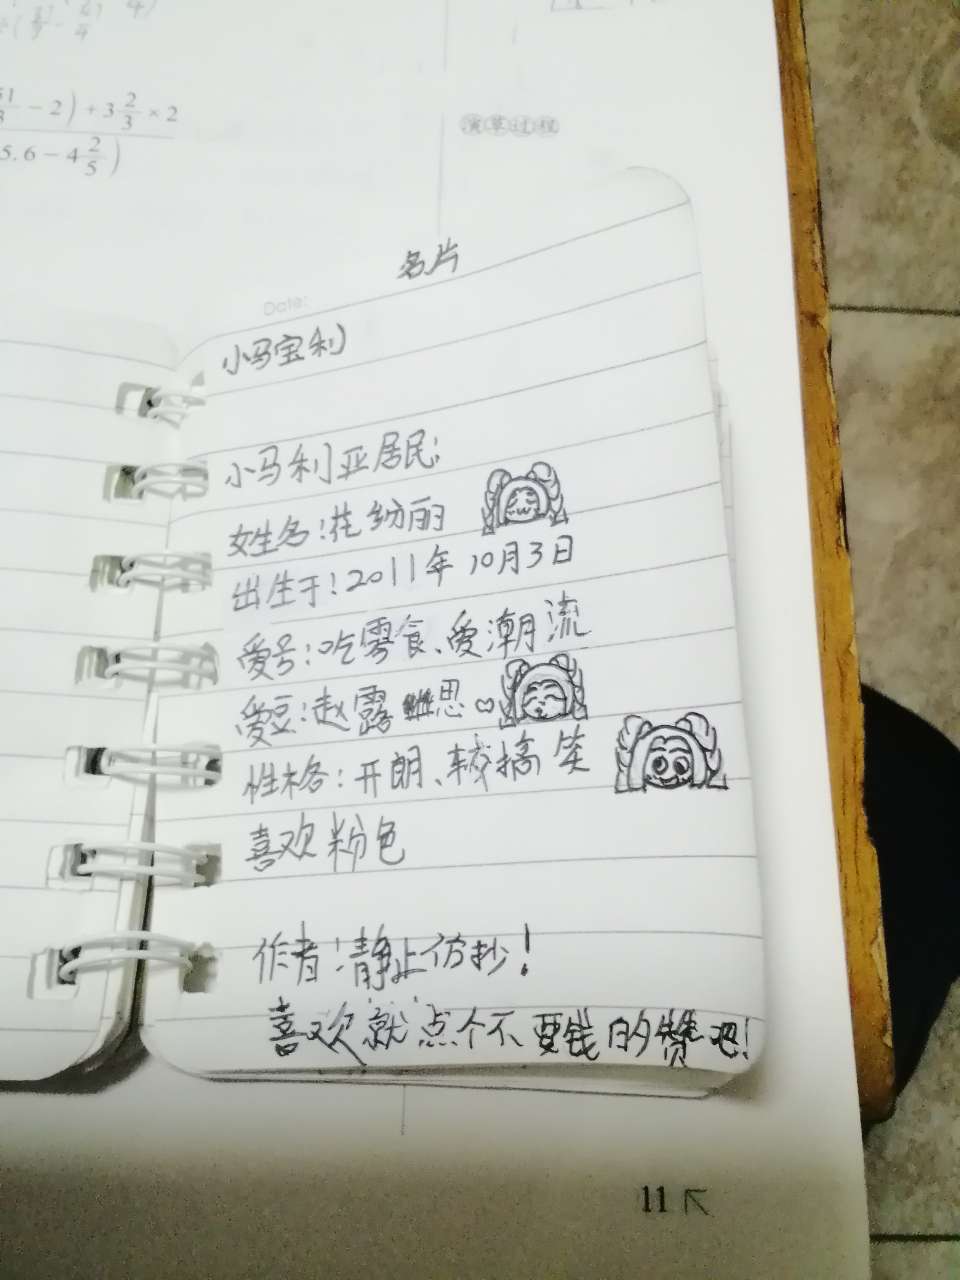 -2)+3 2/3×2
5.6-4 2/5)
演草过程
名片
Date:
小马宝利
小马利亚居民:
姓名:花纷丽
出生于:2011年10月3日
爱号:吃零食、爱潮流
爱豆:赵露思♡
性格:开朗、较搞笑
喜欢粉色
作者:静止仿抄!
喜欢就点个不要钱的赞吧!
11